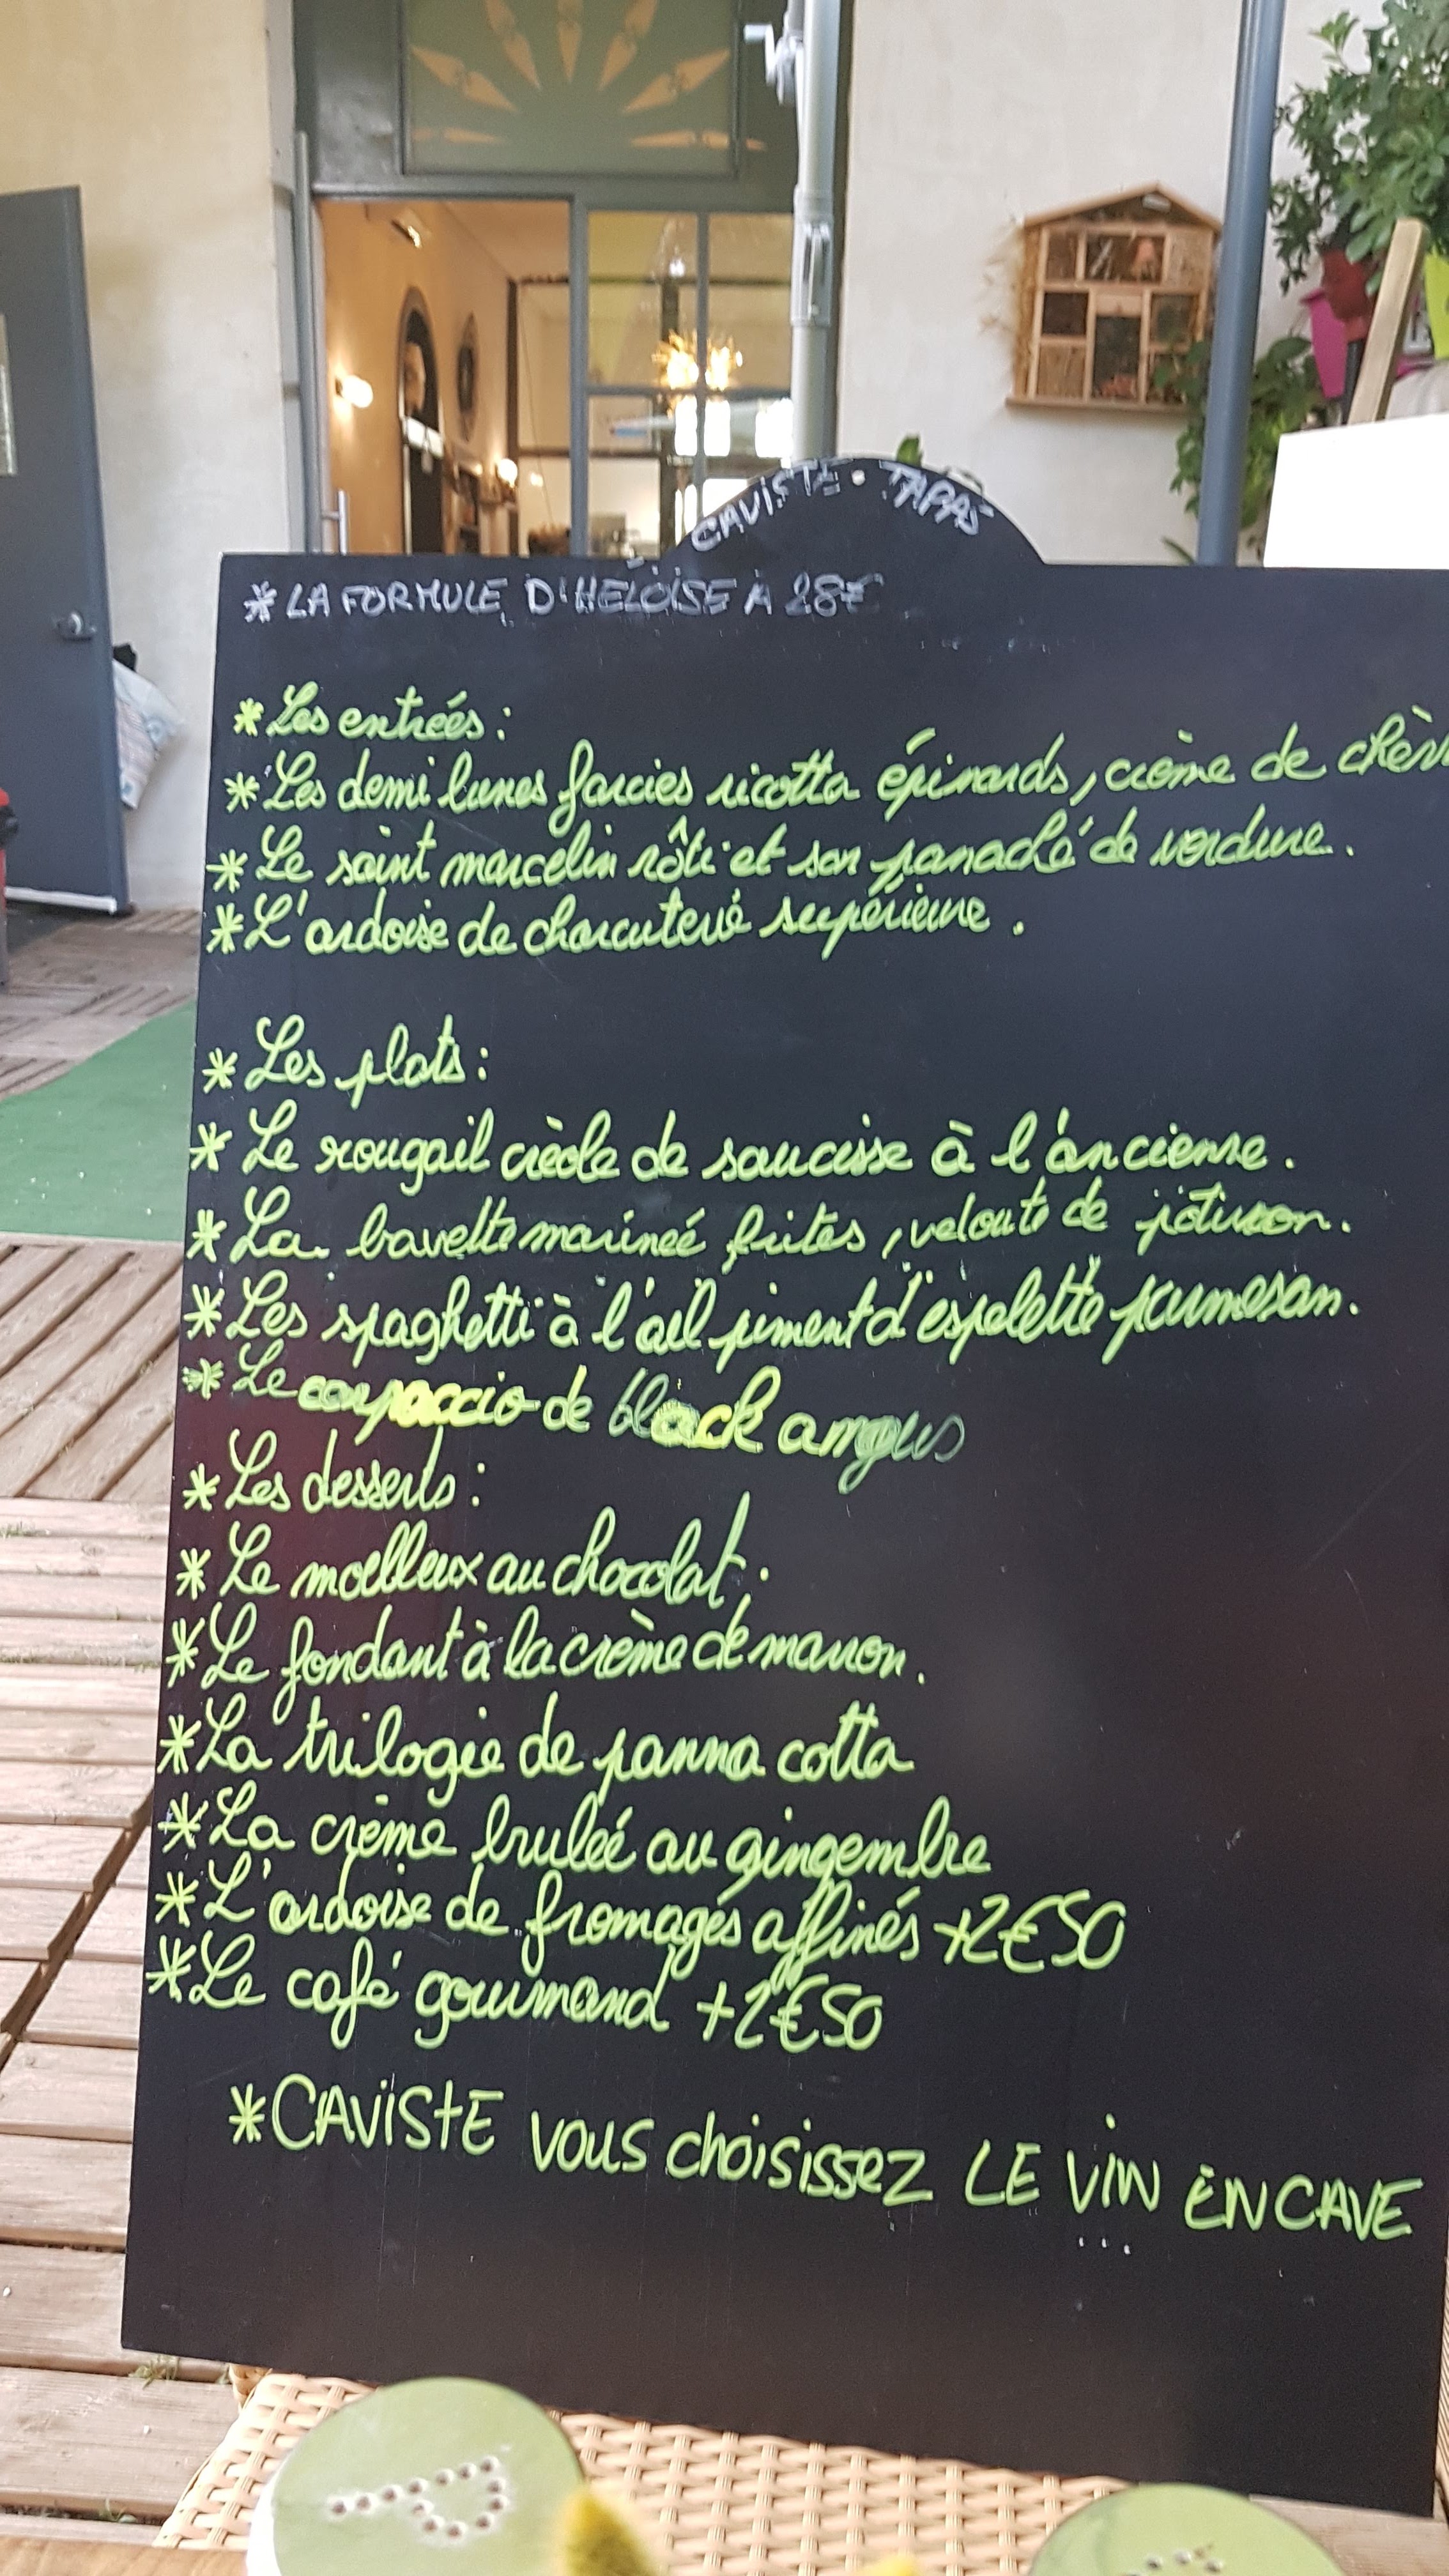 CAVISTE · TAPAS
* LA FORMULE D'HELOISE A 28€
* Les entrées :
* Les demi lunes farcies ricotta épinards, crème de chèv
* Le saint marcelin rôti et son panaché de verdure.
* L'ardoise de charcuterie supérieure.
* Les plats :
* Le rougail créole de saucisse à l'ancienne.
* La bavette marineé frites, velouté de potiron.
* Les spaghetti à l'ail piment d'espelette parmesan.
* Le carpaccio de black angus
* Les desserts :
* Le moelleux au chocolat.
* Le fondant à la crème de marron.
* La trilogie de panna cotta
* La crème bruleé au gingembre
* L'ardoise de fromages affinés +2€50
* Le café gourmand +2€50
* CAVISTE vous choisissez LE VIN EN CAVE
...